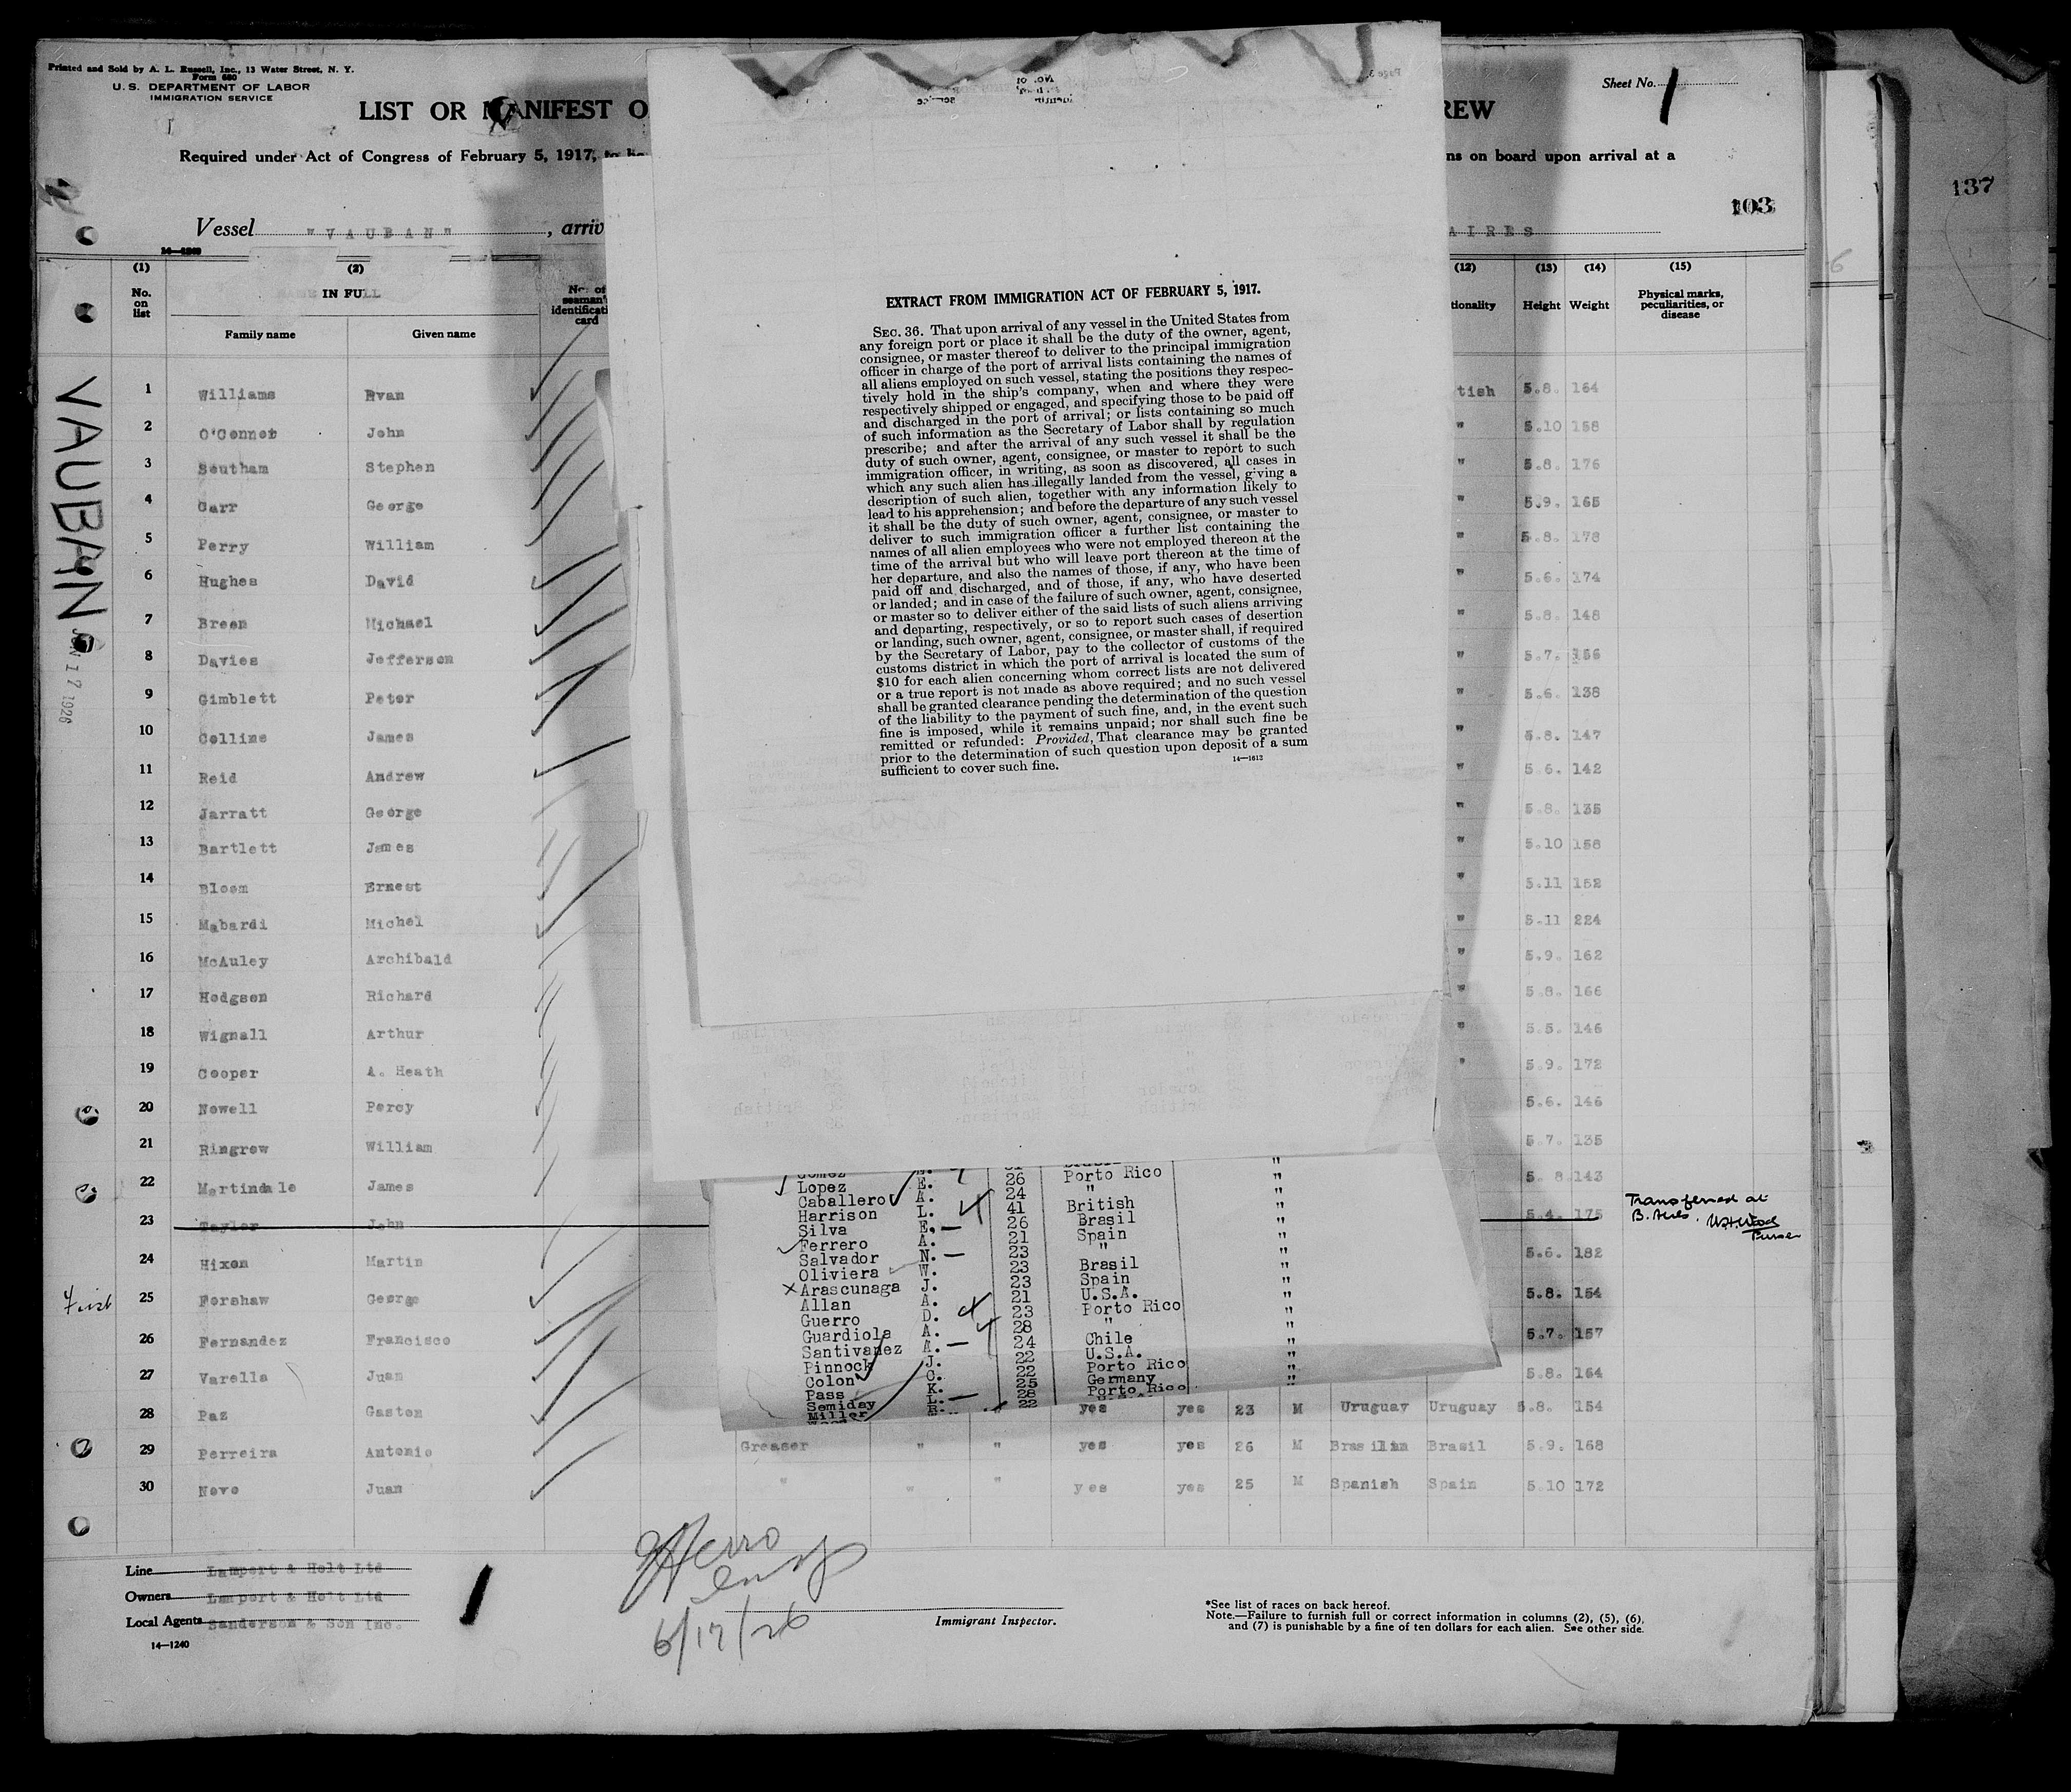 Printed and Sold by A. L. Russell, Inc., 13 Water Street, N. Y.
Form 680
U. S. DEPARTMENT OF LABOR
IMMIGRATION SERVICE
Sheet No. 1
LIST OR MANIFEST O
REW
Required under Act of Congress of February 5, 1917, to be
ns on board upon arrival at a
137
103
Vessel "VAUBAN", arriv
AIRES
14—1240
(1) (2) (12) (13) (14) (15)
No. on list
NAME IN FULL
Family name Given name
No. of seaman's identificati card
tionality Height Weight Physical marks, peculiarities, or disease
VAUBAN
JUN 17 1926
1 Williams Evan tish 5.8. 164
2 O'Connor John " 5.10 158
3 Southam Stephen " 5.8. 176
4 Carr George " 5.9. 165
5 Perry William " 5.8. 178
6 Hughes David " 5.6. 174
7 Breen Michael " 5.8. 148
8 Davies Jefferson " 5.7. 156
9 Gimblett Peter " 5.6. 138
10 Collins James " 5.8. 147
11 Reid Andrew " 5.6. 142
12 Jarratt George " 5.8. 135
13 Bartlett James " 5.10 158
14 Bloom Ernest " 5.11 152
15 Mabardi Michel " 5.11 224
16 McAuley Archibald " 5.9. 162
17 Hodgson Richard " 5.8. 166
18 Wignall Arthur " 5.5. 146
19 Cooper A. Heath " 5.9. 172
20 Newell Percy 5.6. 146
21 Ringrow William 5.7. 135
22 Martindale James 5. 8. 143
23 Taylor John 5.4. 175 Transferred at
B. Aires. Purser
24 Hixon Martin 5.6. 182
First 25 Forshaw George 5.8. 154
26 Fernandez Francisco 5.7. 157
27 Varella Juan 5.8. 164
28 Paz Gaston yes yes 23 M Uruguay Uruguay 5.8. 154
29 Perreira Antonio Greaser " " yes yes 26 M Brasilian Brasil 5.9. 168
30 Novo Juan " " " yes yes 25 M Spanish Spain 5.10 172
EXTRACT FROM IMMIGRATION ACT OF FEBRUARY 5, 1917.
SEC. 36. That upon arrival of any vessel in the United States from
any foreign port or place it shall be the duty of the owner, agent,
consignee, or master thereof to deliver to the principal immigration
officer in charge of the port of arrival lists containing the names of
all aliens employed on such vessel, stating the positions they respec-
tively hold in the ship's company, when and where they were
respectively shipped or engaged, and specifying those to be paid off
and discharged in the port of arrival; or lists containing so much
of such information as the Secretary of Labor shall by regulation
prescribe; and after the arrival of any such vessel it shall be the
duty of such owner, agent, consignee, or master to report to such
immigration officer, in writing, as soon as discovered, all cases in
which any such alien has illegally landed from the vessel, giving a
description of such alien, together with any information likely to
lead to his apprehension; and before the departure of any such vessel
it shall be the duty of such owner, agent, consignee, or master to
deliver to such immigration officer a further list containing the
names of all alien employees who were not employed thereon at the
time of the arrival but who will leave port thereon at the time of
her departure, and also the names of those, if any, who have been
paid off and discharged, and of those, if any, who have deserted
or landed; and in case of the failure of such owner, agent, consignee,
or master so to deliver either of the said lists of such aliens arriving
and departing, respectively, or so to report such cases of desertion
or landing, such owner, agent, consignee, or master shall, if required
by the Secretary of Labor, pay to the collector of customs of the
customs district in which the port of arrival is located the sum of
$10 for each alien concerning whom correct lists are not delivered
or a true report is not made as above required; and no such vessel
shall be granted clearance pending the determination of the question
of the liability to the payment of such fine, and, in the event such
fine is imposed, while it remains unpaid; nor shall such fine be
remitted or refunded: Provided, That clearance may be granted
prior to the determination of such question upon deposit of a sum
sufficient to cover such fine.
14—1613
Gomez
Lopez E. 26 Porto Rico "
Caballero A. 24 " "
Harrison L. 41 British "
Silva E. 26 Brasil "
Ferrero A. 21 Spain "
Salvador N. 23 " "
Oliviera W. 23 Brasil "
Arascunaga J. 23 Spain "
Allan A. 21 U.S.A. "
Guerro D. 23 Porto Rico "
Guardiola A. 28 " "
Santivanez A. 24 Chile "
Pinnock J. 22 U.S.A. "
Colon C. 22 Porto Rico "
Pass K. 25 Germany "
Semiday L. 28 Porto Rico "
Miller R. 22
Line Lamport & Holt Ltd
Owners Lamport & Holt Ltd
Local Agents Sanderson & Son Inc.
14—1240
6/17/26
Immigrant Inspector.
*See list of races on back hereof.
Note.—Failure to furnish full or correct information in columns (2), (5), (6),
and (7) is punishable by a fine of ten dollars for each alien. See other side.